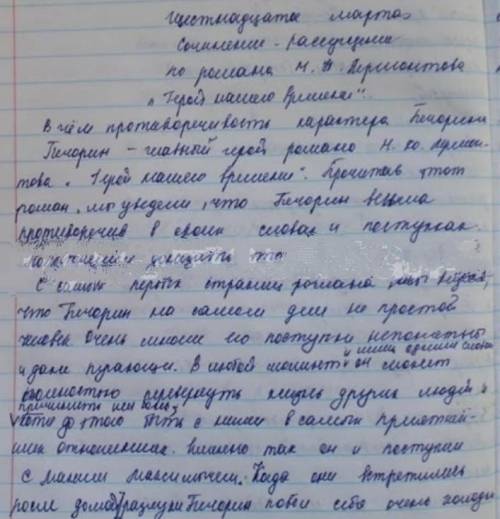 Шестнадцатое марта
Сочинение-рассуждение
по романа М. Ю. Лермонтова
„Герой нашего времени".
В чём противоречивость характера Печорина
Печорин – главный герой романа М. Ю. Лермон-
това „Герой нашего времени". Прочитав этот
роман, мы увидели, что Печорин весьма
противоречив в своих словах и поступках.
С самых первых страниц романа мы
что Печорин на самом деле не простой
человек. Очень многие его поступки непонятны
и даже пугающи. В любой момент он сможет
одним словом
полностью перевернуть жизнь других людей,
причинить им боль,
до этого быть с ними в самых приятней-
ших отношениях. Именно так он и поступил
с Максим Максимычем. Когда они встретились
после долгой разлуки Печорин повёл себя очень холодно